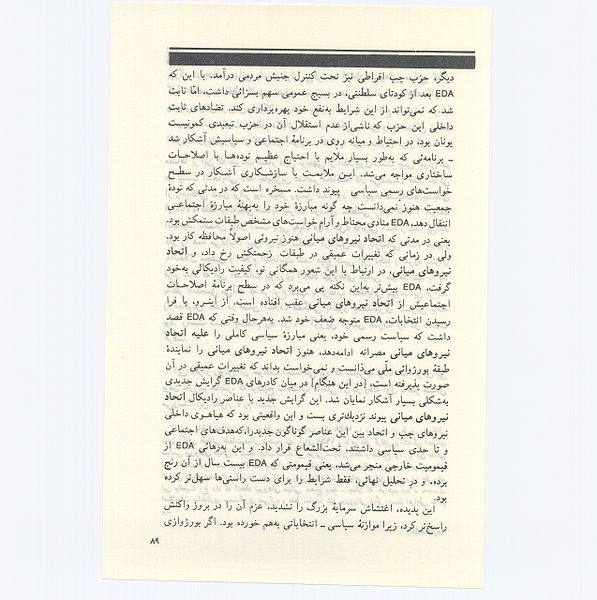 دیگر، حزب چپ افراطی نیز تحت کنترل جنبش مردمی درآمد. با این که
EDA بعد از کودتای سلطنتی، در بسیج عمومی سهم بسزائی داشت، امّا ثابت
شد که نمی‌تواند از این شرایط به‌نفع خود بهره‌برداری کند. تضادهای ثابت
داخلی این حزب که ناشی‌از عدم استقلال آن در حزب تبعیدی کمونیست
یونان بود، در احتیاط و میانه روی در برنامهٔ اجتماعی و سیاسیش آشکار شد
ـ برنامه‌ئی که به‌طور بسیار ملایم با احتیاج عظیم توده‌ها با اصلاحات
ساختاری مواجه می‌شد. این ملایمت یا سازشکاری آشکار در سطح
خواست‌های رسمی سیاسی پیوند داشت. مسخره است که در مدتی که تودهٔ
جمعیت هنوز نمی‌دانست چه گونه مبارزهٔ خود را به‌پهنهٔ مبارزهٔ اجتماعی
انتقال دهد، EDA منادی محتاط و آرام خواست‌های مشخص طبقات ستمکش بود.
یعنی در مدتی که اتحاد نیروهای میانی هنوز نیروئی اصولاً محافظه کار بود.
ولی در زمانی که تغییرات عمیقی در طبقات زحمتکش رخ داد، و اتحاد
نیروهای میانی، در ارتباط با این شعور همگانی نو، کیفیت رادیکالی به‌خود
گرفت، EDA بیش‌تر به‌این نکته پی می‌برد که در سطح برنامهٔ اصلاحات
اجتماعیش از اتحاد نیروهای میانی عقب افتاده است. از اینرو، با فرا
رسیدن انتخابات، EDA متوجه ضعف خود شد. به‌هرحال وقتی که EDA قصد
داشت که سیاست رسمی خود، یعنی مبارزهٔ سیاسی کاملی را علیه اتحاد
نیروهای میانی مصرانه ادامه‌دهد، هنوز اتحاد نیروهای میانی را نمایندهٔ
طبقهٔ بورژوائی ملّی می‌دانست و نمی‌خواست بداند که تغییرات عمیقی در آن
صورت پذیرفته است، [در این هنگام] در میان کادرهای EDA گرایش جدیدی
به‌شکلی بسیار آشکار نمایان شد. این گرایش جدید با عناصر رادیکال اتحاد
نیروهای میانی پیوند نزدیک‌تری بست و این واقعیتی بود که هیاهوی داخلی
نیروهای چپ و اتحاد بین این عناصر گوناگون جدیدرا،که‌هدف‌های اجتماعی
و تا حدی سیاسی داشتند، تحت‌الشعاع قرار داد. و این به‌رهائی EDA از
قیمومیت خارجی منجر می‌شد، یعنی قیمومتی که EDA بیست سال از آن رنج
برده، و در تحلیل نهائی، فقط شرایط را برای دست راستی‌ها سهل‌تر کرده
بود.
این پدیده، اغتشاش سرمایهٔ بزرگ را تشدید، عزم آن را در بروز واکنش
راسخ‌تر کرد، زیرا موازنهٔ سیاسی ـ انتخاباتی به‌هم خورده بود. اگر بورژوازی
۸۹